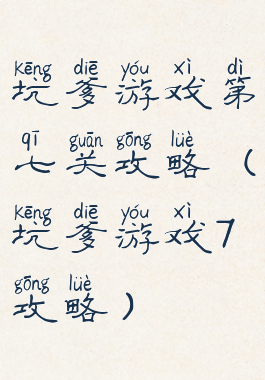 kēng diē yóu xì dì
坑爹游戏第
qī guān gōng lüè
七关攻略（
kēng diē yóu xì
坑爹游戏7
gōng lüè
攻略）